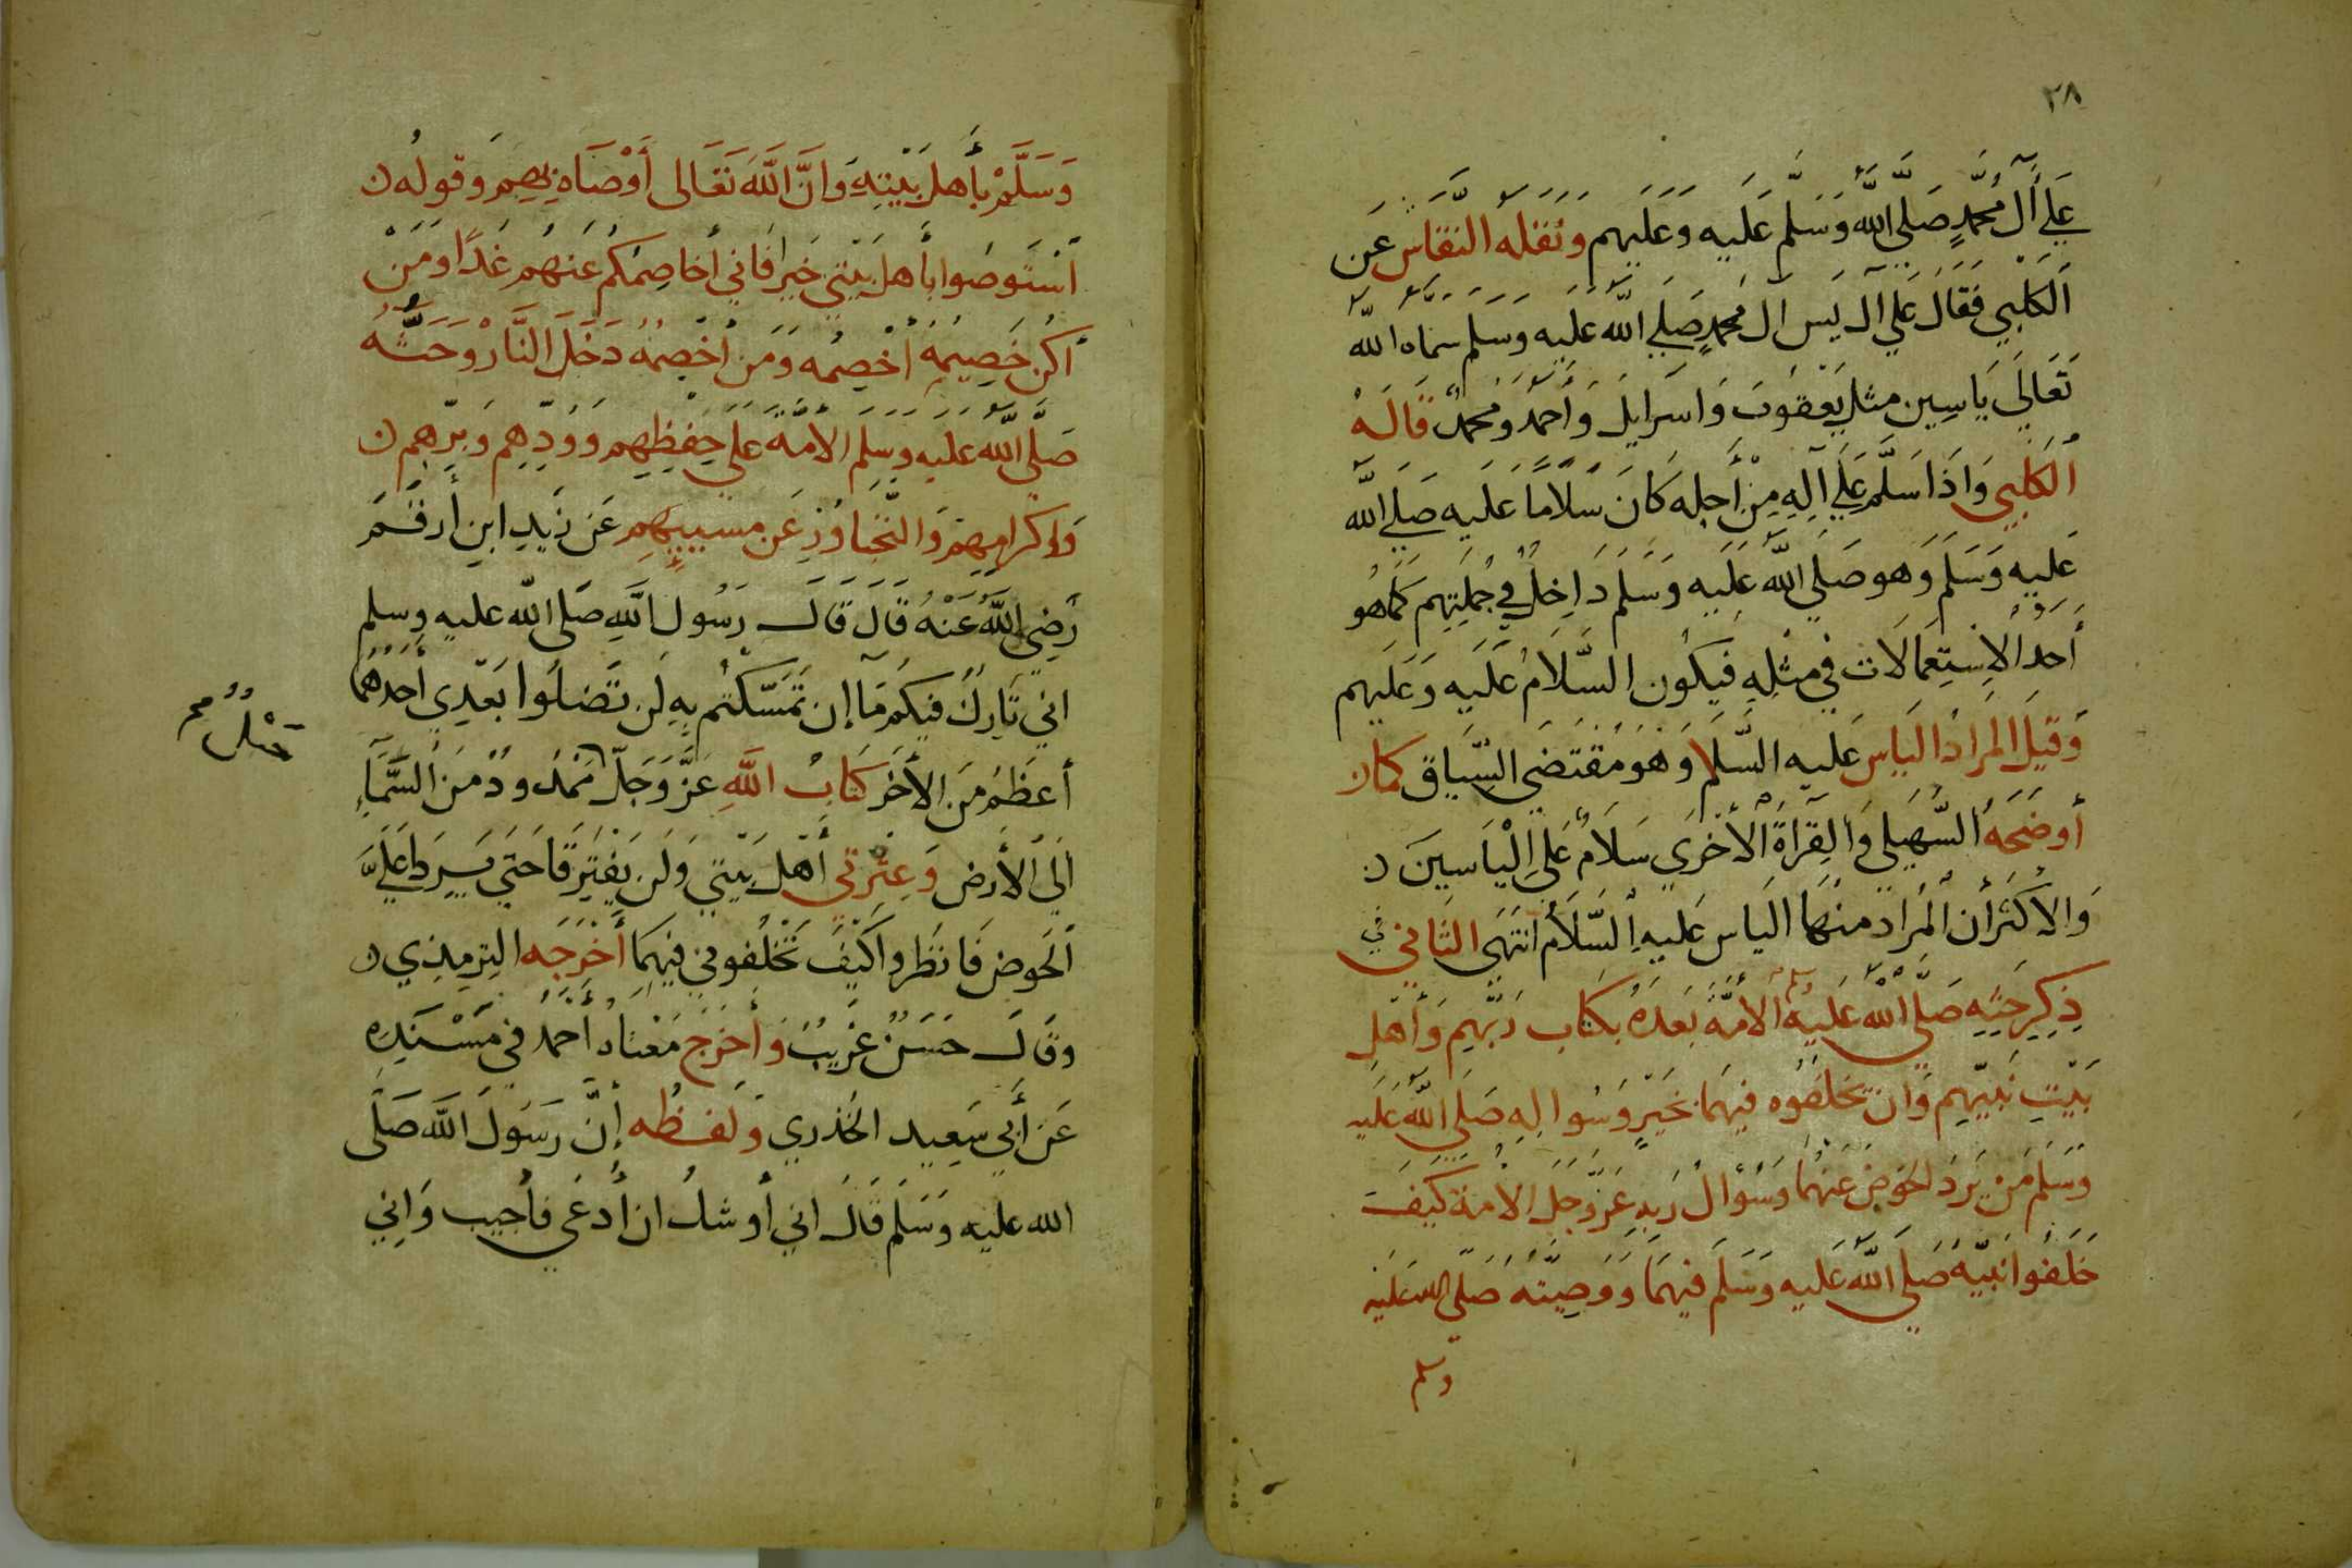 ٢٨
عَلَى آلِ مُحَمَّدٍ صَلَّى اللهُ وَسَلَّمَ عَلَيه وَعَلَيهم وَنَقَلَهُ النَّقَّاش عَن
الكَلبِي فَقَالَ عَلَى آل يس آل مُحمدٍ صَلى الله عَليه وسَلم سماه الله
تَعَالَى يَاسِين مثل يَعقوبَ وَاسرَايل وَأحمد وَمحمد قَالهُ
الكَلبي وَاذَا سَلَّم عَلَى آلِهِ مِنْ أَجلِه كَانَ سَلَامًا عَليه صَلى الله
عَليه وَسَلم وَهو صَلى الله عَلَيه وَسَلم دَاخِلٌ فِي جُملَتِهِم كَمَا هُو
أَحَدُ الاِستِعمالَات في مِثلِهِ فَيكُون السَّلَامُ عَلَيه وَعَلَيهم
وَقيلَ المَرادُ الياس عَليه السَّلام وَهوَ مُقتَضَى السِّيَاق كمان
أوضَحَهُ السُّهَيلي وَالقِرَاةُ الأخرَى سَلَامٌ عَلَى اِلْيَاسِينَ ن
وَالاكثر أن المُرادَ منهَا الياس عَليهِ السَّلَامُ انتَهَى الثَّاني في
ذِكرِ حَثِّهِ صَلَّى الله عَليهِ وسلم الأمَّةَ بَعدَهُ بكتَاب رَبِّهِم وَأهلِ
بَيتِ نَبيّهِم وَان تخلفُوه فِيهِمَا بخَيرٍ وَسُوالِهِ صَلى الله عَليه
وَسَلم مَنْ يَردُ الحَوضَ عَنهُما وَسُؤال رَبهِ عَزَّ وَجَل الامة كَيفَ
خَلَفُوا نَبيَّهُ صَلى الله عَليه وَسَلم فيهِمَا وَوَصِيته صَلى الله عَليه
وسلم
وَسَلَّمْ بأَهلِ بَيتِهِ وَانَّ اللَّهَ تَعَالى أَوْصَاهِ بِهِم وَقولُه ن
استَوصُوا بأهل بَيتي خَيرا فَاني أخاصِمُكُم عَنهُم غَدًا وَمَنْ
أكُن خَصِيمَه أَخصِمُه وَمَن أَخْصِمُهُ دَخَلَ النَّارْ وَحَثّهُ
صَلَّى اللهُ عَليه وسَلم الامَّة عَلى حِفظِهِم وَوُدِّهِم وَبِرّهم ن
وَاكرَامِهِم وَالتَّجَاوُزِ عَن مسييهِم عَن زَيدِ ابنِ أَرقَم
رَضِي اللهُ عَنْهُ قَالَ قَالَ رَسُول اللَّهِ صَلى الله عليه وسلم
اني تَارِكٌ فيكُم مَا إن تَمَسّكتُم بِهِ لَن تَضلوا بَعدِي أَحَدُهُمَا
أعظَم مِن الأخَر كتَابُ اللَّهِ عَزَّ وَجَلّ مَمْدُودٌ مِنَ السَّمَاءِ
حَبْلٌ صح
الى الأَرض وَعِترتي أَهل بَيتي وَلَن يَفتَرِقَا حَتى يَرِدَا عَلَيَّ
الحَوض فَانظروا كَيفَ تَخلُفوني فيهِمَا أَخْرَجَه التِرمِذِي ن
وقَال حَسَنٌ غَرِيبٌ وَأخرَج مَعناه أحمد في مسْنَدِه
عَن أَبي سَعِيد الخُدري وَلَفظه إنَّ رَسُولَ اللَّهَ صَلَّى
الله عليه وَسَلم قَالَ اني أوشك ان أُدعَى فأجيب وَاِنِي